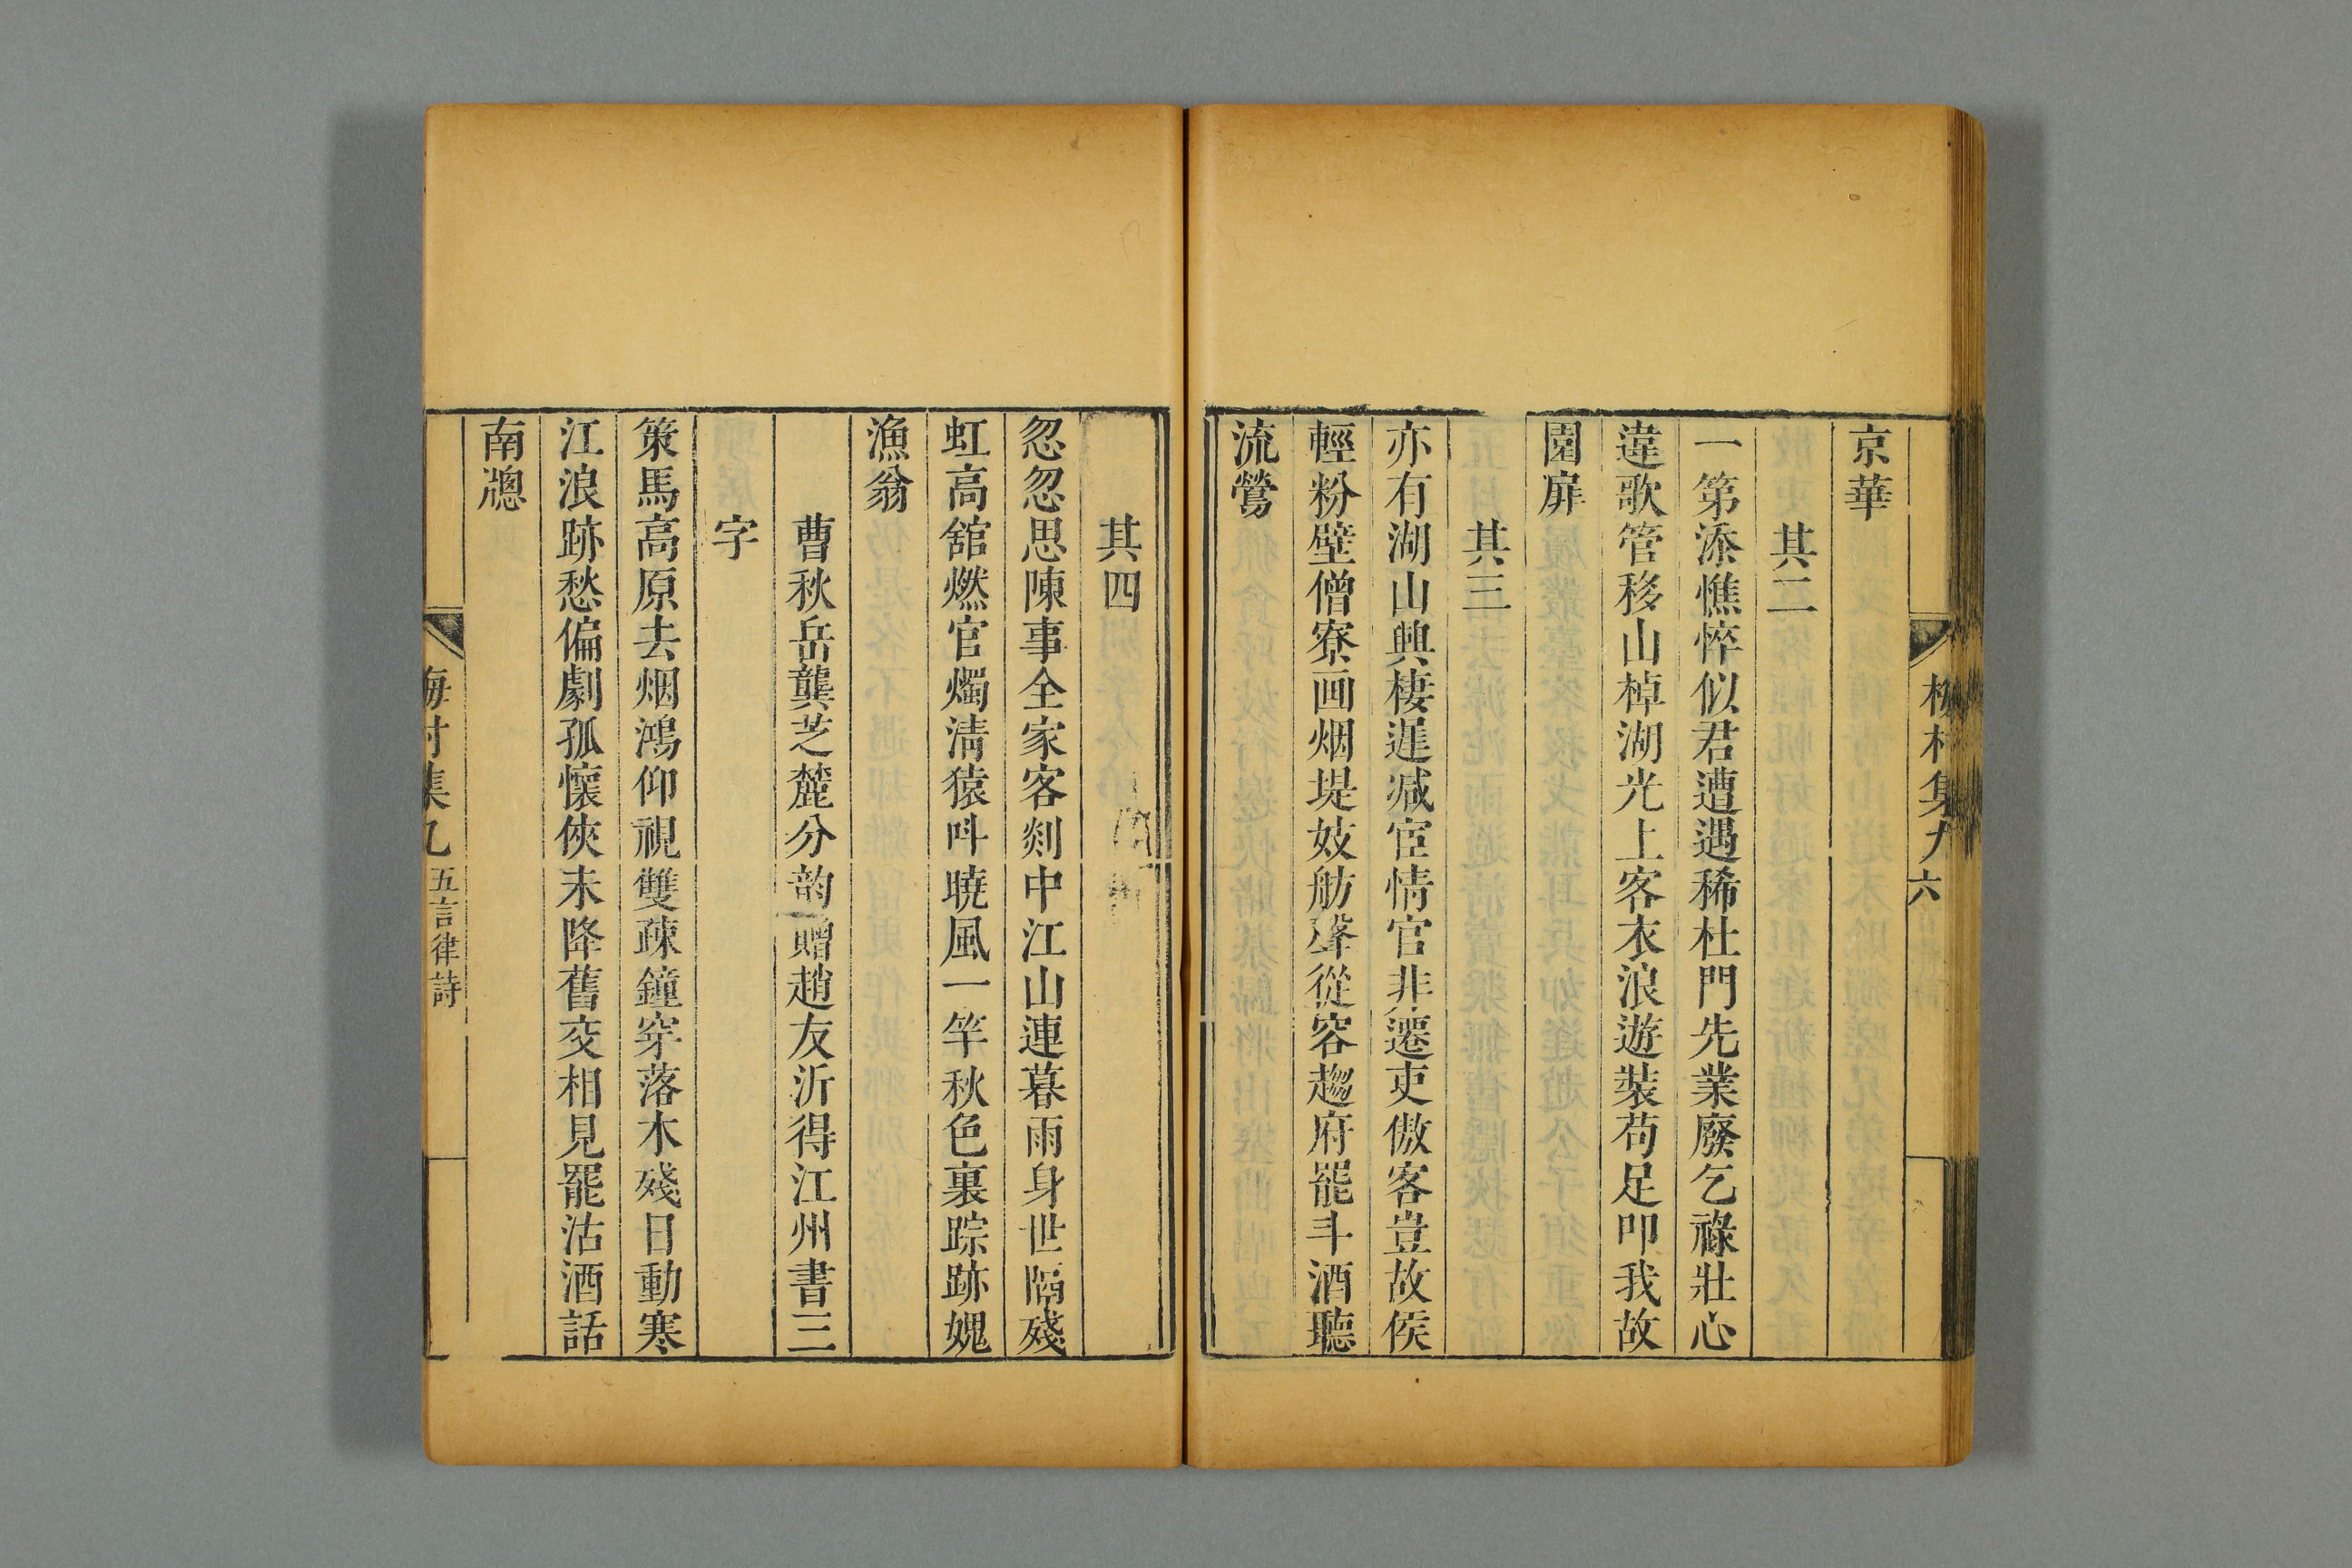 梅村集九 六
京華
其二
一第添憔悴似君遭遇稀杜門先業廢乞祿壯心
違歌管移山棹湖光上客衣浪遊裝苟足叩我故
園扉
其三
亦有湖山興棲遲減宦情官非遷吏傲客豈故侯
輕粉壁僧寮画烟堤妓舫聲從容趨府罷斗酒聽
流鶯
其四
忽忽思陳事全家客剡中江山連暮雨身世隔殘
虹高舘燃官燭清猿呌曉風一竿秋色裏踪跡媿
漁翁
曹秋岳龔芝麓分韵贈趙友沂得江州書三
字
策馬高原去烟鴻仰視雙疎鐘穿落木殘日動寒
江浪跡愁偏劇孤懷俠未降舊交相見罷沽酒話
南牕
梅村集九 五言律詩